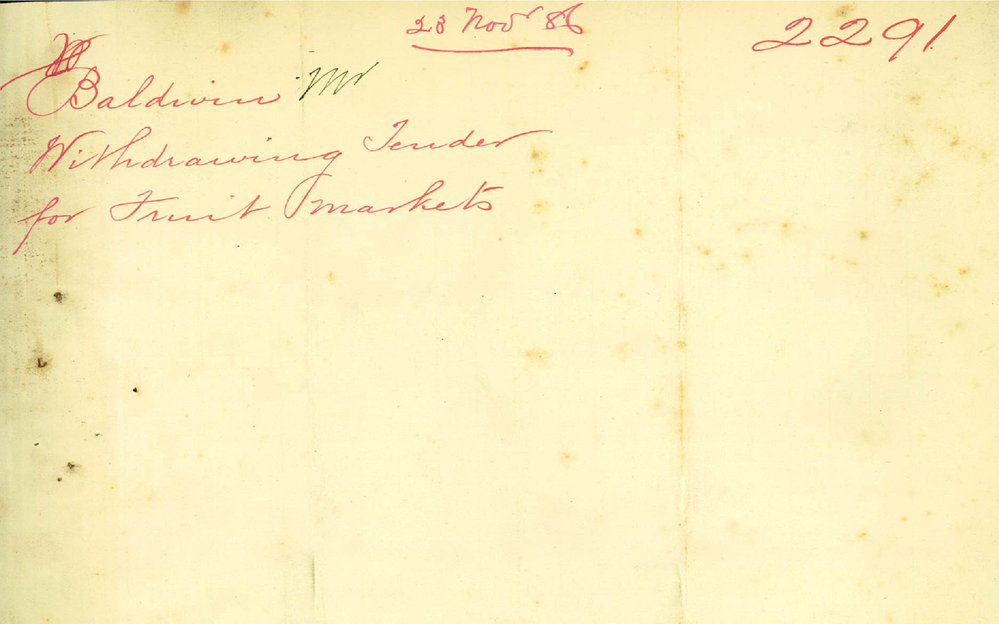 23 Novr 86
2291
Baldwin Mr
Withdrawing Tender
for Fruit Markets